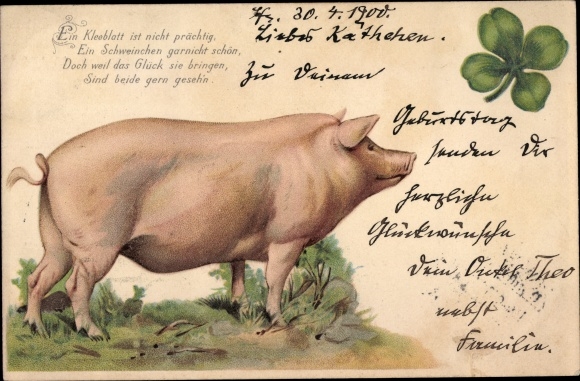 Ein Kleeblatt ist nicht prächtig,
Ein Schweinchen garnicht schön,
Doch weil das Glück sie bringen,
Sind beide gern geseh'n.
30.4.1900.
Liebes Käthchen.
Zu Deinem
Geburtstag
senden Dir
herzliche
Glückwünsche
Dein Onkel Theo
nebst
Familie.